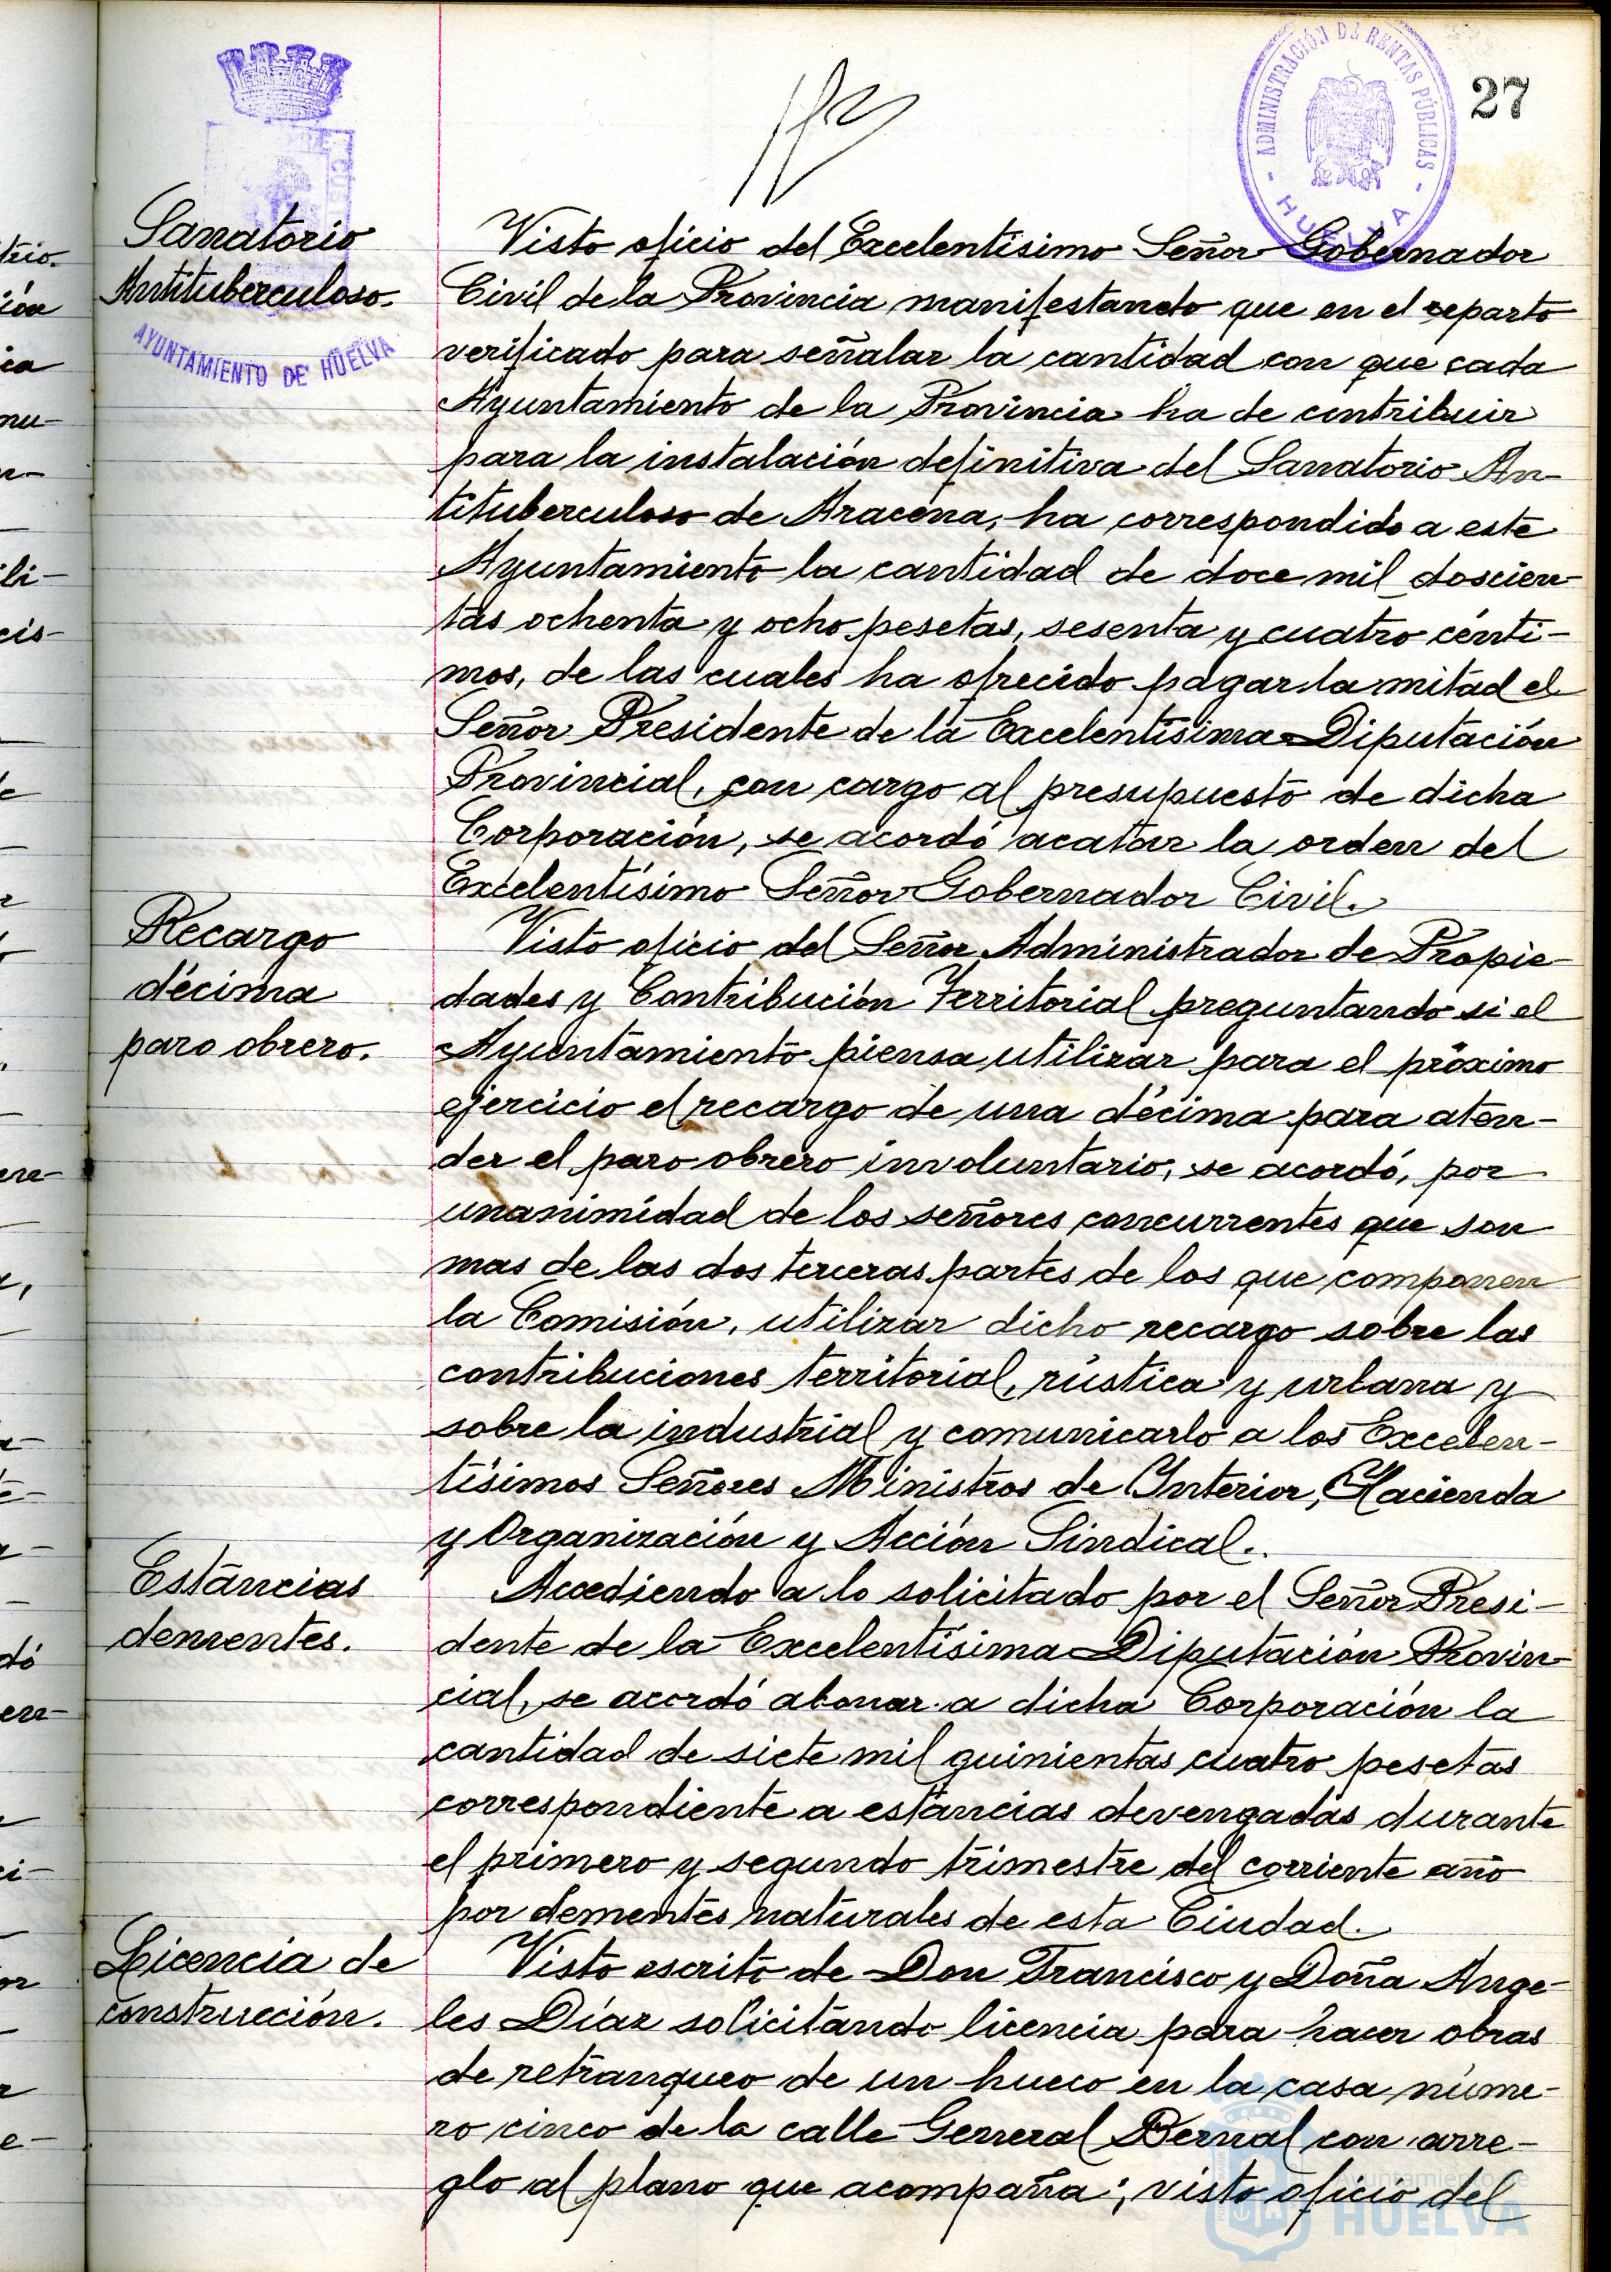 ADMINISTRACIÓN DE RENTAS PÚBLICAS
- HUELVA -
27
Sanatorio
Antituberculoso.
AYUNTAMIENTO DE HUELVA
Visto oficio del Excelentísimo Señor Gobernador
Civil de la Provincia manifestando que en el reparto
verificado para señalar la cantidad con que cada
Ayuntamiento de la Provincia ha de contribuir
para la instalación definitiva del Sanatorio An-
tituberculoso de Aracena, ha correspondido a este
Ayuntamiento la cantidad de doce mil doscien-
tas ochenta y ocho pesetas, sesenta y cuatro cénti-
mos, de las cuales ha ofrecido pagar la mitad el
Señor Presidente de la Excelentísima Diputación
Provincial, con cargo al presupuesto de dicha
Corporación, se acordó acatar la orden del
Excelentísimo Señor Gobernador Civil.
Recargo
décima
paro obrero.
Visto oficio del Señor Administrador de Propie-
dades y Contribución Territorial preguntando si el
Ayuntamiento piensa utilizar para el próximo
ejercicio el recargo de una décima para aten-
der el paro obrero involuntario, se acordó, por
unanimidad de los señores concurrentes que son
mas de las dos terceras partes de los que componen
la Comisión, utilizar dicho recargo sobre las
contribuciones territorial, rústica y urbana y
sobre la industrial y comunicarlo a los Excelen-
tísimos Señores Ministros de Interior, Hacienda
y Organización y Acción Sindical.
Estancias
dementes.
Accediendo a lo solicitado por el Señor Presi-
dente de la Excelentísima Diputación Provin-
cial, se acordó abonar a dicha Corporación la
cantidad de siete mil quinientas cuatro pesetas
correspondiente a estancias devengadas durante
el primero y segundo trimestre del corriente año
por dementes naturales de esta Ciudad.
Licencia de
construcción.
Visto escrito de Don Francisco y Doña Ange-
les Díaz solicitando licencia para hacer obras
de retranqueo de un hueco en la casa núme-
ro cinco de la calle General Bernal con arre-
glo al plano que acompaña; visto oficio del
Ayuntamiento de
HUELVA